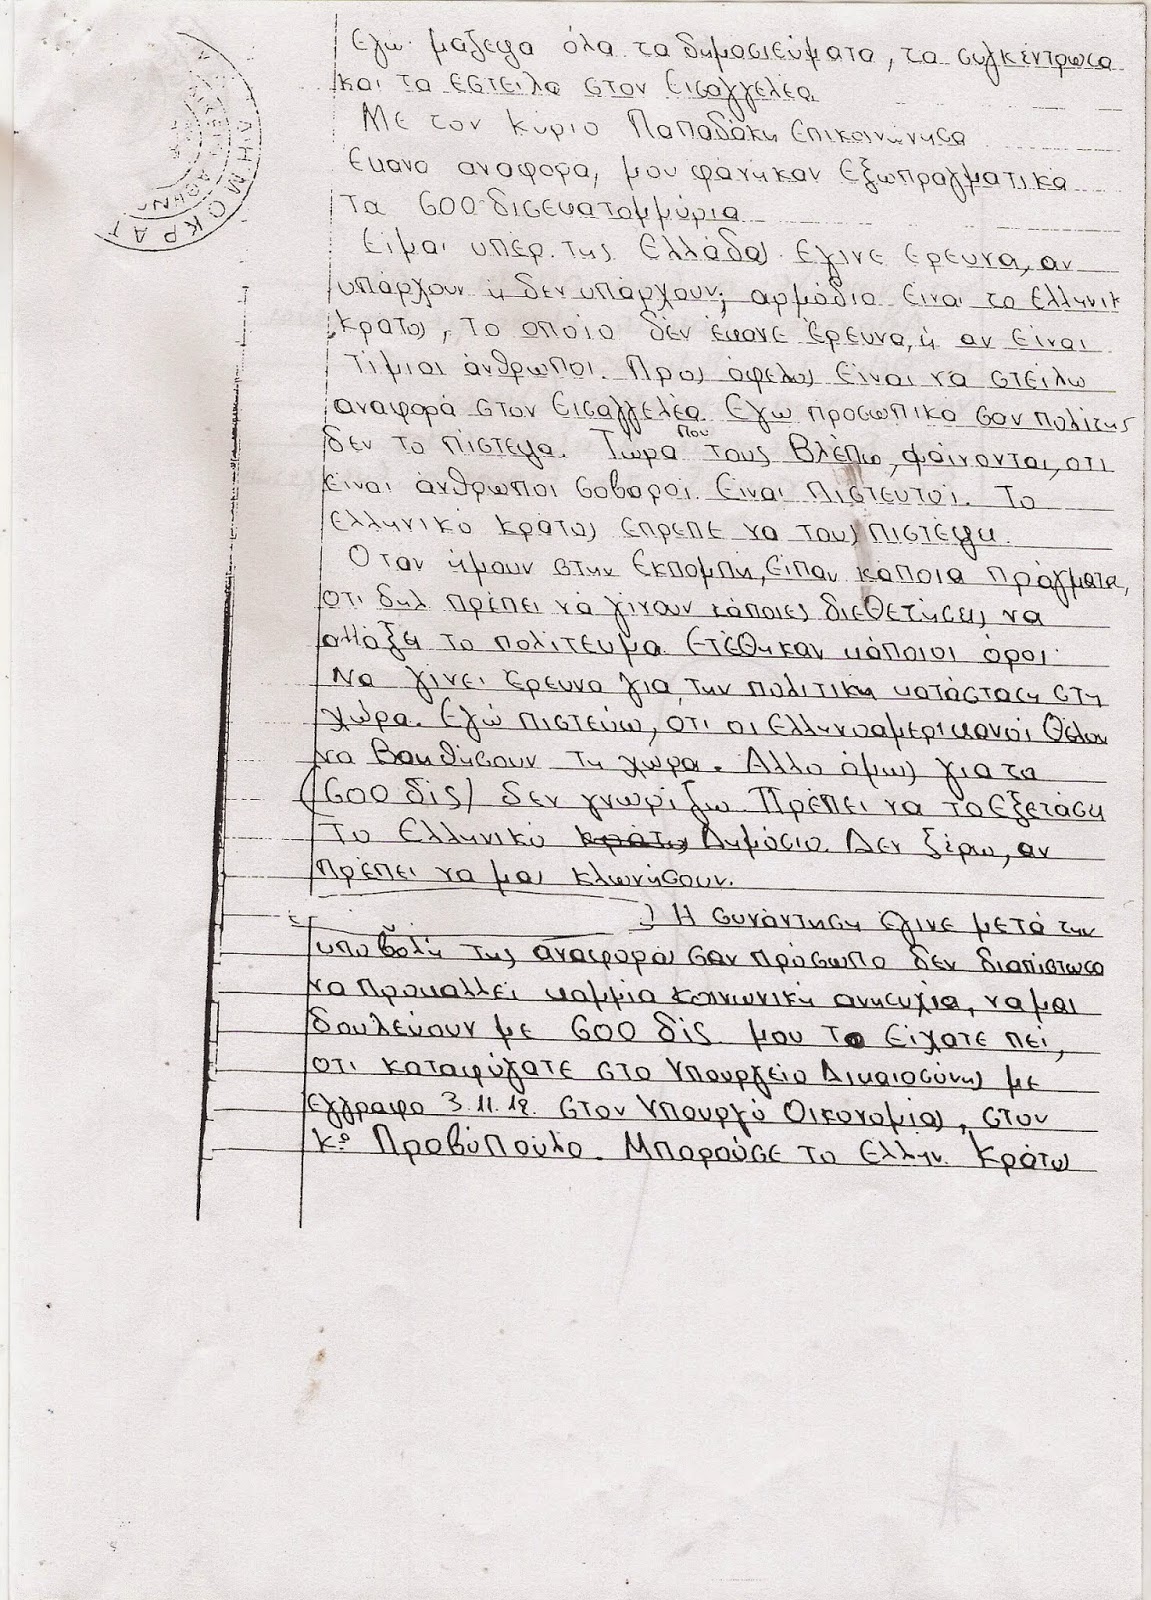 ΔΗΜΟΚΡΑΤ
ΑΘΗΝ
Εγώ μάζεψα όλα τα δημοσιεύματα, τα συγκέντρωσα
και τα έστειλα στον Εισαγγελέα
Με τον κύριο Παπαδάκη Επικοινώνησα
Εκανα αναφορα, μου φάνηκαν Εξωπραγματικά
Τα 600 δισεκατομμύρια
Είμαι υπέρ της Ελλάδας. Εγινε έρευνα, αν
υπάρχουν ή δεν υπάρχουν; αρμόδιο Είναι το Ελληνικ
κρατος, το οποίο δέν έκανε Έρευνα, ή αν είναι
Τίμιοι άνθρωποι. Προς όφελος Είναι να στείλω
αναφορά στον Εισαγγελέα Εγω προσωπικα σαν πολίτης
δεν το πίστεψα. Τώρα που τους Βλέπω, φαίνονται, οτι
είναι άνθρωποι σοβαροί. Είναι πιστευτοί. Το
Ελληνικό κράτος έπρεπε να τους πιστέψει.
Οταν ήμουν στην Εκπομπή, Είπαν κάποια πράγματα,
οτι δηλ πρέπει νά γίνουν κάποιες διεθετήσεις να
αλλάξει το πολίτευμα. Ετέθηκαν κάποιοι όροι
Να γίνει έρευνα για την πολιτική κατάσταση στη
χώρα. Εγώ πιστεύω, ότι οι Ελληνοαμερικανοί Θέλουν
να Βοηθήσουν τη χώρα. Αλλο όμως για τα
(600 δις) δεν γνωρίζω Πρέπει να το Εξετάσει
Το Ελληνικό κράτος Δημόσιο. Δεν ξέρω, αν
πρέπει να μας κλωνήσουν.
Η συνάντηση έγινε μετά την
υποβολή της αναφοράς σαν πρόσωπο δεν διαπίστωσα
να προκαλλεί καμμία κοινωνική ανησυχία, να μας
δουλεύουν με 600 δίς μου το Είχατε πεί,
οτι καταφύγατε στο Υπουργείο Δικαιοσύνης με
έγγραφο 3.11.12. στον Υπουργό Οικονομίας, στον
κο Προβόπουλο. Μπορούσε το Ελλην. Κράτος